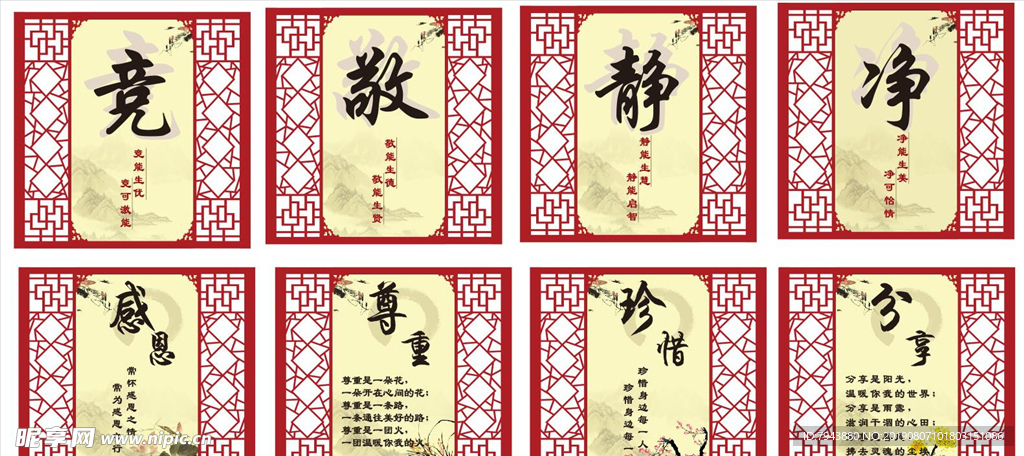 竞
竞能生优
竞可激能
敬
敬能生德
敬能生贤
静
静能生慧
静能启智
净
净能生美
净可怡情
感恩
常怀感恩之情
常为感恩
行
尊重
尊重是一朵花，
一朵开在心间的花；
尊重是一条路，
一条通往美好的路；
尊重是一团火，
一团温暖你我的火
珍惜
珍惜身边每一人
珍惜身边每一
分享
分享是阳光，
温暖你我的世界；
分享是雨露，
滋润干涸的心田；
拂去灵魂的尘埃
昵享网 www.nipic.cn
ID:7943880 NO:20190807101803151086